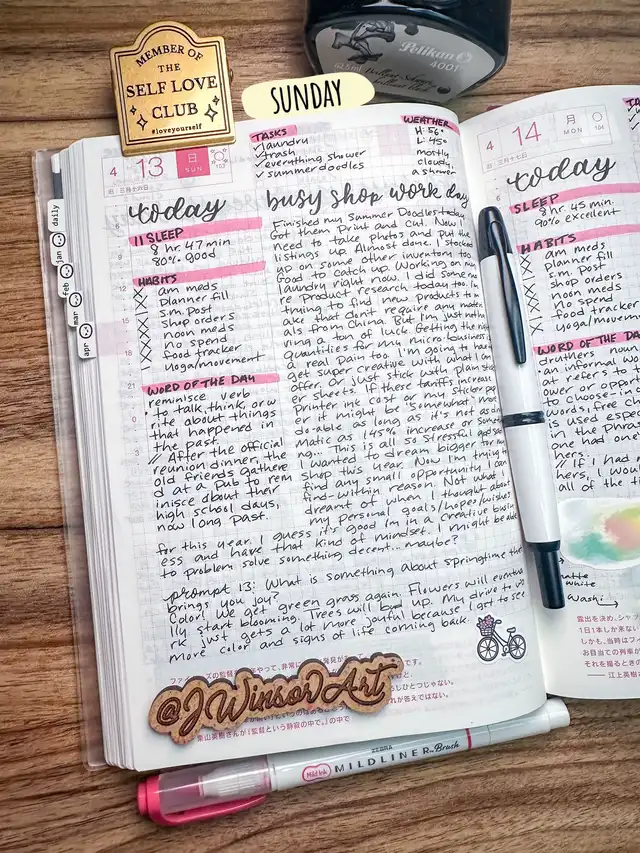 MEMBER OF
THE
SELF LOVE
CLUB
#loveyourself
Pelikan
4001
SUNDAY
4 13 日 SUN
today
11 SLEEP
8 hr. 47 min
80% good
HABITS
am meds
planner fill
s.m. Post
shop orders
noon meds
no spend
food tracker
yoga/movement
WORD OF THE DAY
reminisce verb
to talk, think, or w
rite about things
that happened in
the past.
// After the official
reunion dinner, the
old friends gathere
d at a pub to rem
inisce about their
high school days,
now long past.
TASKS
✓ laundry
✓ trash
✓ everything shower
✓ summer doodles
WEATHER
H: 56°
L: 45°
mostly
cloudy,
a shower
busy shop work day
Finished my Summer Doodles today
Got them Print and Cut. Now I
need to take photos and put the
listings up. Almost done. I stocked
up on some other inventory too.
Good to catch up. Working on my
laundry right now. I did some mo
re product research today too. I'm
trying to find new products to m
ake that don't require any materi
als from China. But I'm just not ha
ving a ton of luck. Getting the right
quantities for my micro-business is
a real pain too. I'm going to have
get super creative with what I can
offer. Or just stick with plain stick
er sheets. If these tariffs increase
Printer ink cost or my sticker pap
er it might be "somewhat" more
do-able as long as it's not as
matic as 145% increase or
ng... This is all so stressful
I wanted to dream bigger for my
shop this year. Now I'm trying to
find any small opportunity I can
find-within reason. Not what I
dreamt of when I thought about
my personal goals/hopes/wishes
for this year. I guess it's good I'm in a creative busin
ess and have that kind of mindset. I might be able
to problem solve something decent... maybe?
prompt 13: What is something about springtime that
brings you joy?
Color! We get green grass again. Flowers will eventua
lly start blooming. Trees will bud up. My drive to wo
rk just gets a lot more joyful because I get to see
more color and signs of life coming back.
@JWinsorArt
daily
jan
feb
mar
apr
4 14 月 MON
today
SLEEP
8 hr. 45 min.
90% excellent
HABITS
am meds
planner fill
s.m. Post
shop orders
noon meds
no spend
food tracker
yoga/movement
WORD OF THE DAY
druthers noun
an informal wo
at refers to t
ower or opport
to choose-in
words, free ch
is used espe
in the phras
one had one
// If I had
hers, I woul
all of the ti
matte
white
Washi
ZEBRA Mild Ink MILDLINER Brush